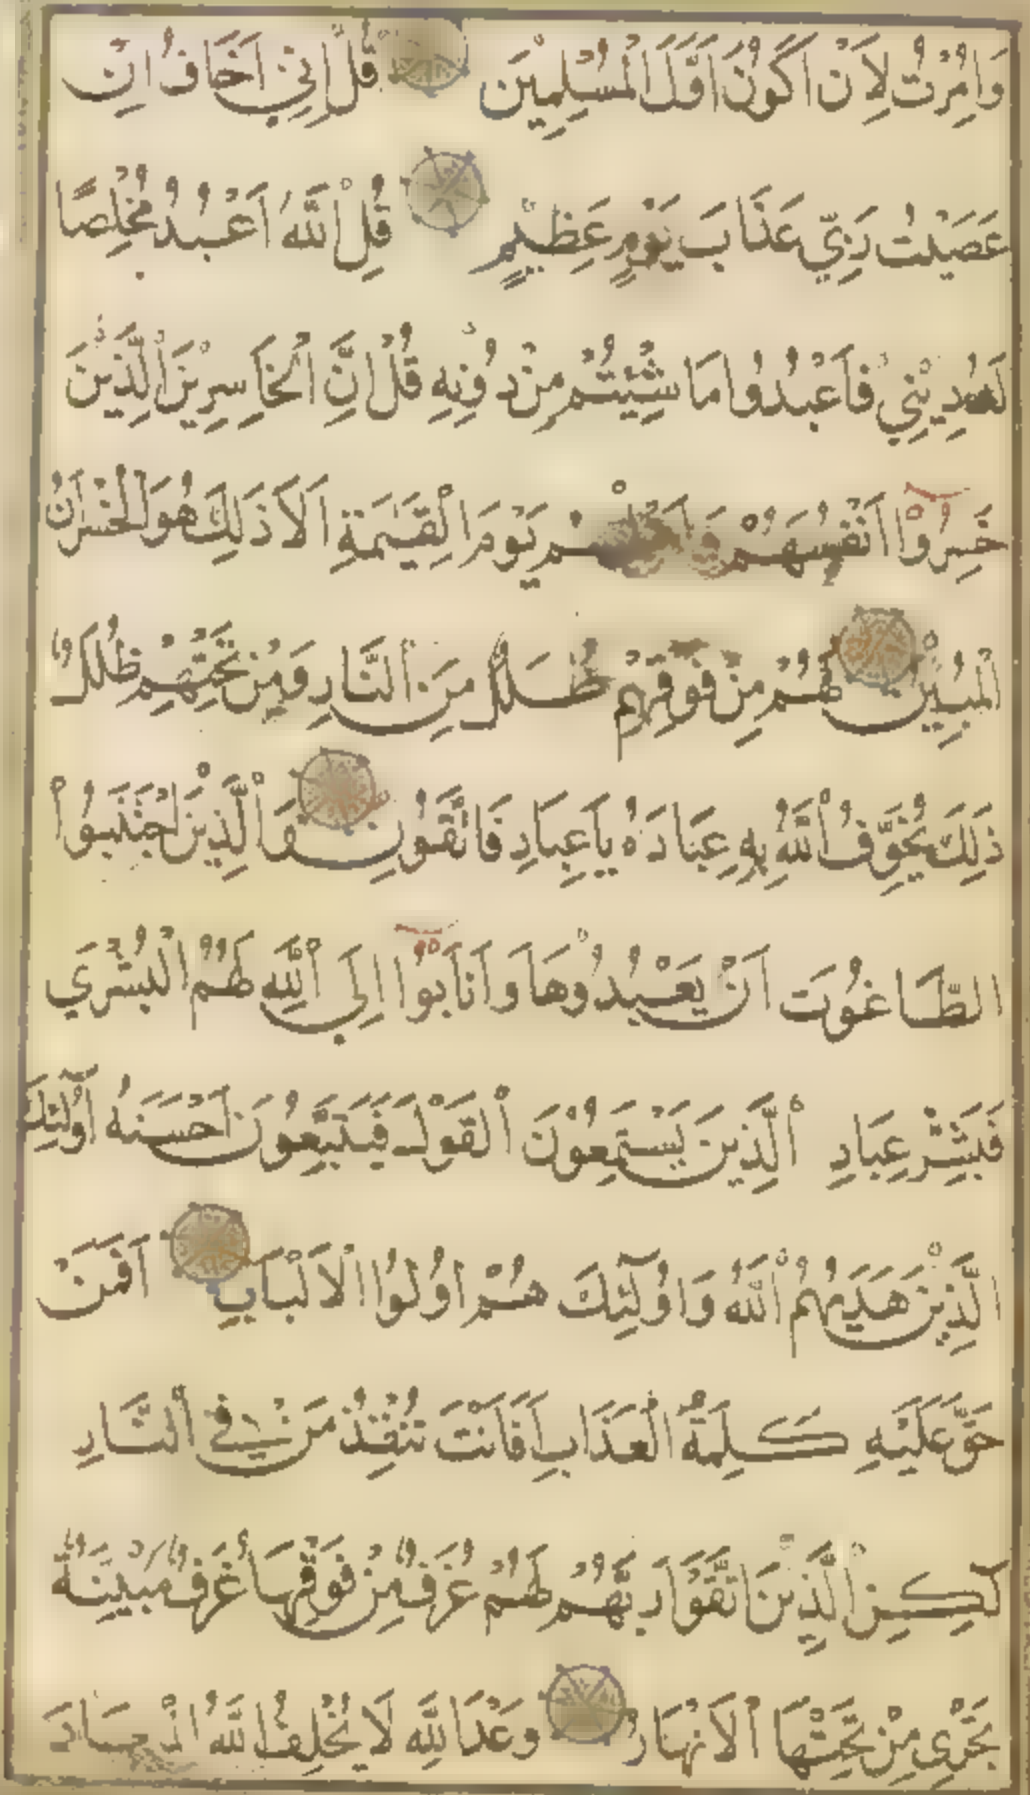 وَاُمِرْتُ لِاَنْ اَكُونَ اَوَّلَ الْمُسْلِمِينَ قُلْ اِنِّي اَخَافُ اِنْ
عَصَيْتُ رَبِّي عَذَابَ يَوْمٍ عَظِيمٍ قُلِ اللَّهَ اَعْبُدُ مُخْلِصًا
لَهُ دِينِي فَاعْبُدُوا مَا شِئْتُمْ مِنْ دُونِهِ قُلْ اِنَّ الْخَاسِرِينَ الَّذِينَ
خَسِرُوا اَنْفُسَهُمْ يَوْمَ الْقِيَمَةِ اَلَا ذَلِكَ هُوَ الْخُسْرَانُ
الْمُبِينُ لَهُمْ مِنْ فَوْقِهِمْ ظُلَلٌ مِنَ النَّارِ وَمِنْ تَحْتِهِمْ ظُلَلٌ
ذَلِكَ يُخَوِّفُ اللَّهُ بِهِ عِبَادَهُ يَاعِبَادِ فَاتَّقُونِ وَالَّذِينَ اجْتَنَبُوا
الطَّاغُوتَ اَنْ يَعْبُدُوهَا وَاَنَابُوا اِلَى اللَّهِ لَهُمُ الْبُشْرَى
فَبَشِّرْ عِبَادِ الَّذِينَ يَسْتَمِعُونَ الْقَوْلَ فَيَتَّبِعُونَ اَحْسَنَهُ اُولَئِكَ
الَّذِينَ هَدَيهُمُ اللَّهُ وَاُولَئِكَ هُمْ اُولُوا الْاَلْبَابِ اَفَمَنْ
حَقَّ عَلَيْهِ كَلِمَةُ الْعَذَابِ اَفَاَنْتَ تُنْقِذُ مَنْ فِي النَّارِ
لَكِنِ الَّذِينَ اتَّقَوْا رَبَّهُمْ لَهُمْ غُرَفٌ مِنْ فَوْقِهَا غُرَفٌ مَبْنِيَّةٌ
تَجْرِي مِنْ تَحْتِهَا الْاَنْهَارُ وَعْدَ اللَّهِ لَا يُخْلِفُ اللَّهُ الْمِيعَادَ